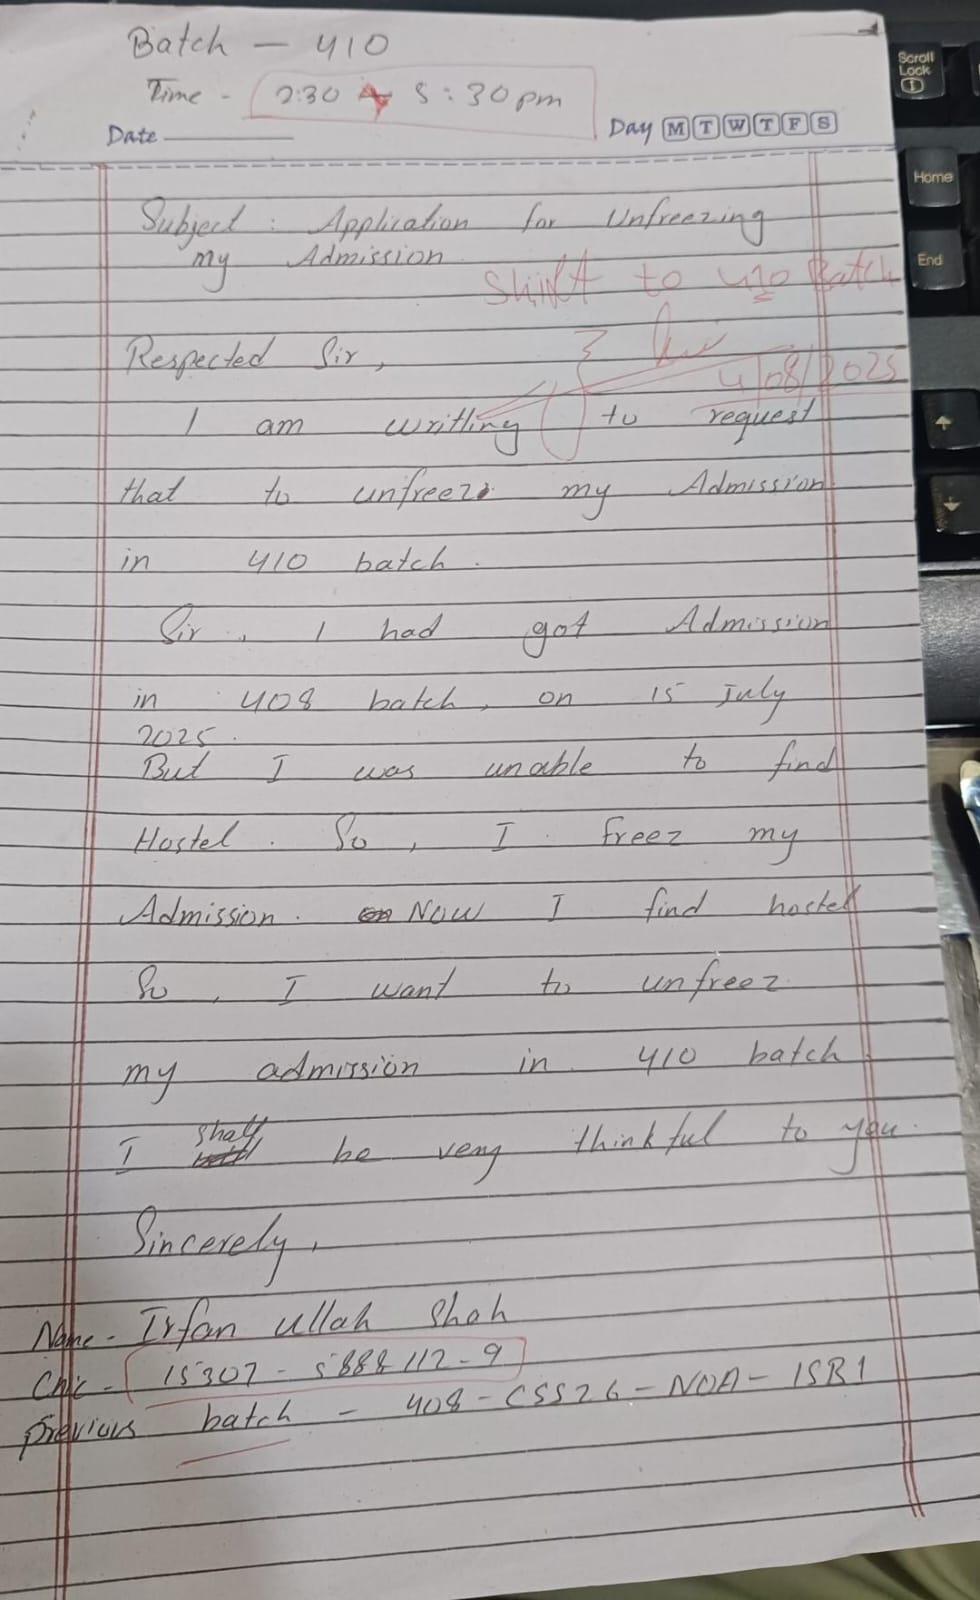 Batch - 410
Time - 2:30 5:30 pm
Date
Day M T W T F S
Subject : Application for Unfreezing
my Admission
Shift to 410 Batch
Respected Sir,
4/08/2025
I am writling to request
that to unfreez my Admission
in 410 batch.
Sir, I had got Admission
in 408 batch, on 15 July
2025.
But I was unable to find
Hostel. So, I freez my
Admission. Now I find hostel
So, I want to unfreez
my admission in 410 batch
I shall be very thinkful to you.
Sincerely,
Name - Irfan Ullah Shah
Cnic - 15302 - 5888112-9
previous batch - 408-CSS26-NOA-ISB1
Scroll
Lock
Home
End